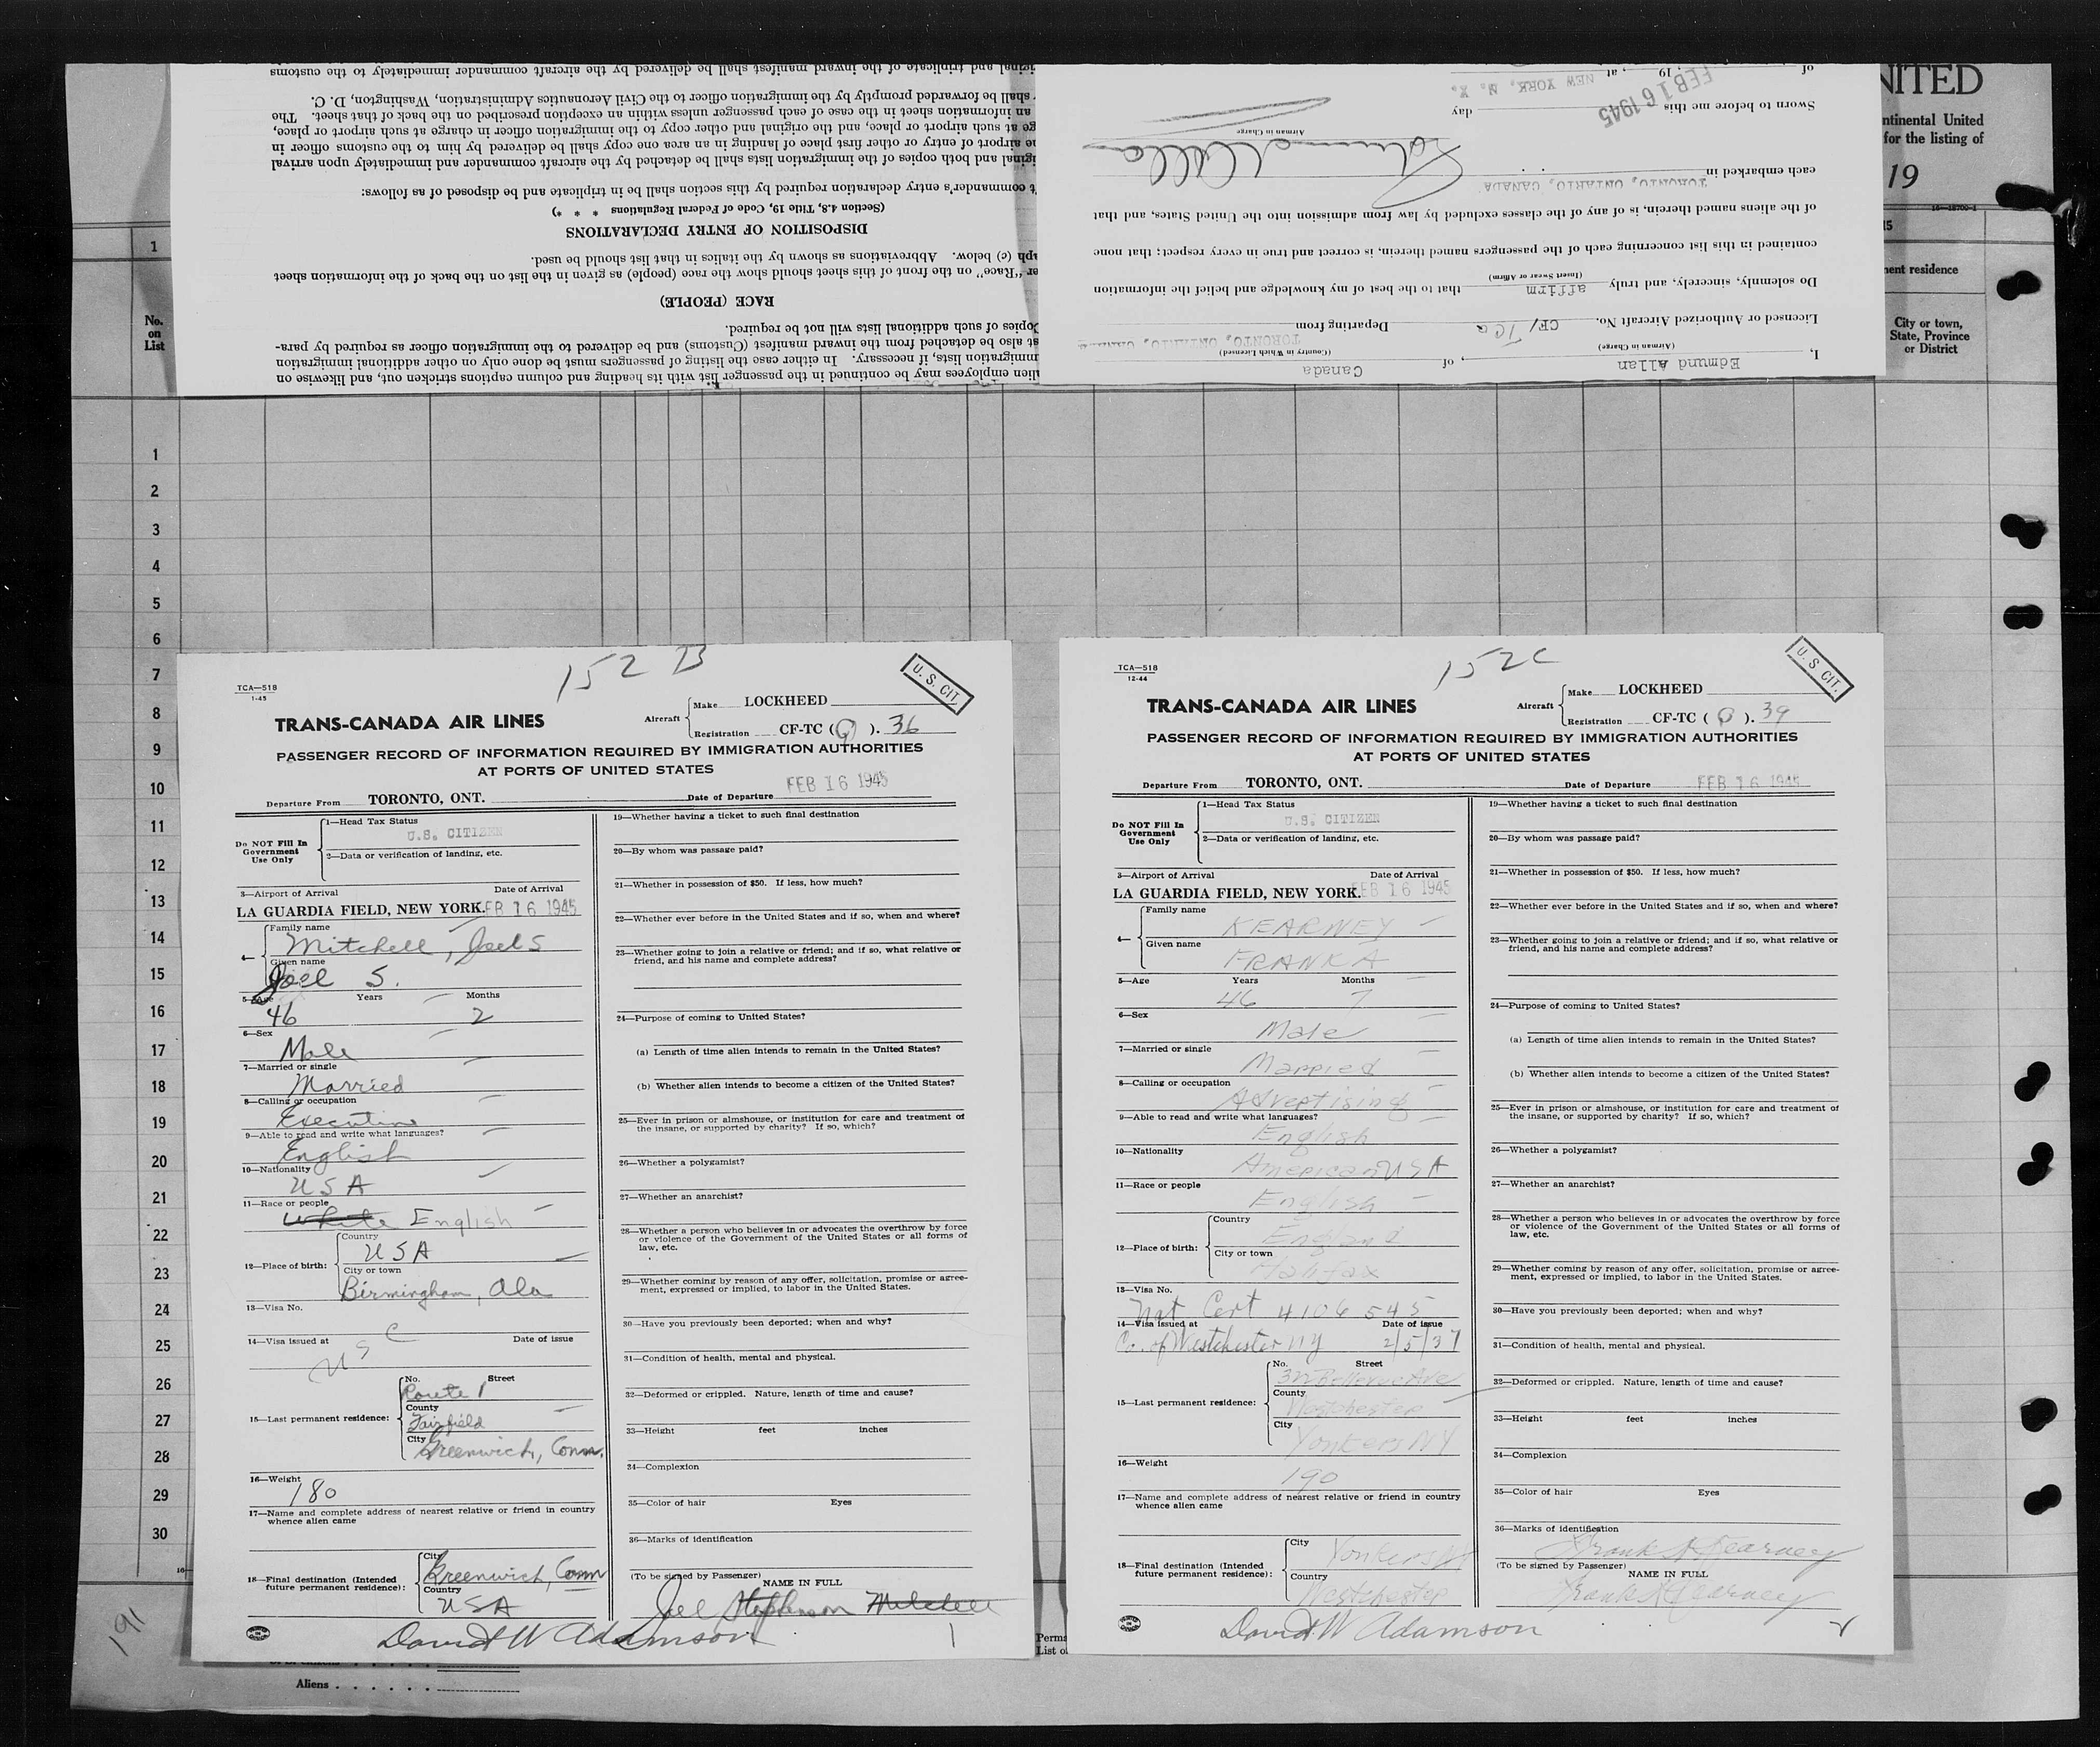 iginal and triplicate of the inward manifest shall be delivered by the aircraft commander immediately to the customs
shall be forwarded promptly by the immigration officer to the Civil Aeronautics Administration, Washington, D. C.
an information sheet in the case of each passenger unless within an exception prescribed on the back of that sheet. The
ge at such airport or place, and the original and other copy to the immigration officer in charge at such airport or place,
ne airport of entry or other first place of landing in an area one copy shall be delivered by him to the customs officer in
iginal and both copies of the immigration lists shall be detached by the aircraft commander and immediately upon arrival
t commander's entry declaration required by this section shall be in triplicate and be disposed of as follows:
(Section 4.8, Title 19, Code of Federal Regulations * * *)
DISPOSITION OF ENTRY DECLARATIONS
ph (c) below. Abbreviations as shown by the italics in that list should be used.
er "Race" on the front of this sheet should show the race (people) as given in the list on the back of the information sheet
RACE (PEOPLE)
Copies of such additional lists will not be required.
st also be detached from the inward manifest (Customs) and be delivered to the immigration officer as required by para-
mmigration lists, if necessary. In either case the listing of passengers must be done only on other additional immigration
lien employees may be continued in the passenger list with its heading and column captions stricken out, and likewise on
of , 19 , at NEW YORK, N. Y.
Sworn to before me this FEB 16 1945 day
Airman in Charge
each embarked in TORONTO, ONTARIO, CANADA
of the aliens named therein, is of any of the classes excluded by law from admission into the United States, and that
contained in this list concerning each of the passengers named therein, is correct and true in every respect; that none
(Insert Swear or Affirm)
Do solemnly, sincerely, and truly affirm that to the best of my knowledge and belief the information
Licensed or Authorized Aircraft No. CF/ TCQ Departing from TORONTO, ONTARIO, CANADA
(Airman in Charge) (Country in Which Licensed)
I, Edmund Allan , of Canada
NITED
ntinental United
for the listing of
19
16—18700-1
15
nent residence
City or town,
State, Province
or District
1
No.
on
List
1
2
3
4
5
6
7
8
9
10
11
12
13
14
15
16
17
18
19
20
21
22
23
24
25
26
27
28
29
30
191
152 B
U. S. CIT.
TCA—518
1-45
TRANS-CANADA AIR LINES
Aircraft
Make LOCKHEED
Registration CF-TC (Q). 36
PASSENGER RECORD OF INFORMATION REQUIRED BY IMMIGRATION AUTHORITIES
AT PORTS OF UNITED STATES
Departure From TORONTO, ONT. Date of Departure FEB 16 1945
Do NOT Fill In
Government
Use Only
1—Head Tax Status
U.S. CITIZEN
2—Data or verification of landing, etc.
3—Airport of Arrival Date of Arrival
LA GUARDIA FIELD, NEW YORK. FEB 16 1945
4— Family name
Mitchell, Joel S
Given name
Joel S.
5—Age Years Months
46 2
6—Sex
Male
7—Married or single
Married
8—Calling or occupation
Executive
9—Able to read and write what languages?
English
10—Nationality
USA
11—Race or people
White English
12—Place of birth:
Country
USA
City or town
Birmingham, Ala
13—Visa No.
14—Visa issued at Date of issue
USC
15—Last permanent residence:
No. Street
Route 1
County
Fairfield
City
Greenwich, Conn.
16—Weight
180
17—Name and complete address of nearest relative or friend in country
whence alien came
18—Final destination (Intended
future permanent residence):
City
Greenwich, Conn
Country
USA
19—Whether having a ticket to such final destination
20—By whom was passage paid?
21—Whether in possession of $50. If less, how much?
22—Whether ever before in the United States and if so, when and where?
23—Whether going to join a relative or friend; and if so, what relative or
friend, and his name and complete address?
24—Purpose of coming to United States?
(a) Length of time alien intends to remain in the United States?
(b) Whether alien intends to become a citizen of the United States?
25—Ever in prison or almshouse, or institution for care and treatment of
the insane, or supported by charity? If so, which?
26—Whether a polygamist?
27—Whether an anarchist?
28—Whether a person who believes in or advocates the overthrow by force
or violence of the Government of the United States or all forms of
law, etc.
29—Whether coming by reason of any offer, solicitation, promise or agree-
ment, expressed or implied, to labor in the United States.
30—Have you previously been deported; when and why?
31—Condition of health, mental and physical.
32—Deformed or crippled. Nature, length of time and cause?
33—Height feet inches
34—Complexion
35—Color of hair Eyes
36—Marks of identification
(To be signed by Passenger)
NAME IN FULL
Joel Stephenson Mitchell
PRINTED IN CANADA
David W Adamson
1
152C
U. S. CIT.
TCA—518
12-44
TRANS-CANADA AIR LINES
Aircraft
Make LOCKHEED
Registration CF-TC (Q). 39
PASSENGER RECORD OF INFORMATION REQUIRED BY IMMIGRATION AUTHORITIES
AT PORTS OF UNITED STATES
Departure From TORONTO, ONT. Date of Departure FEB 16 1945
Do NOT Fill In
Government
Use Only
1—Head Tax Status
U.S. CITIZEN
2—Data or verification of landing, etc.
3—Airport of Arrival Date of Arrival
LA GUARDIA FIELD, NEW YORK. FEB 16 1945
4— Family name
KEARNEY
Given name
FRANK A
5—Age Years Months
46 7
6—Sex
Male
7—Married or single
Married
8—Calling or occupation
Advertising
9—Able to read and write what languages?
English
10—Nationality
American USA
11—Race or people
English
12—Place of birth:
Country
England
City or town
Halifax
13—Visa No.
Nat Cert 4106545
14—Visa issued at Date of issue
Co. of Westchester NY 2/5/37
15—Last permanent residence:
No. Street
Bellevue Ave
County
Westchester
City
Yonkers NY
16—Weight
190
17—Name and complete address of nearest relative or friend in country
whence alien came
18—Final destination (Intended
future permanent residence):
City
Yonkers NY
Country
Westchester
19—Whether having a ticket to such final destination
20—By whom was passage paid?
21—Whether in possession of $50. If less, how much?
22—Whether ever before in the United States and if so, when and where?
23—Whether going to join a relative or friend; and if so, what relative or
friend, and his name and complete address?
24—Purpose of coming to United States?
(a) Length of time alien intends to remain in the United States?
(b) Whether alien intends to become a citizen of the United States?
25—Ever in prison or almshouse, or institution for care and treatment of
the insane, or supported by charity? If so, which?
26—Whether a polygamist?
27—Whether an anarchist?
28—Whether a person who believes in or advocates the overthrow by force
or violence of the Government of the United States or all forms of
law, etc.
29—Whether coming by reason of any offer, solicitation, promise or agree-
ment, expressed or implied, to labor in the United States.
30—Have you previously been deported; when and why?
31—Condition of health, mental and physical.
32—Deformed or crippled. Nature, length of time and cause?
33—Height feet inches
34—Complexion
35—Color of hair Eyes
36—Marks of identification
Frank A Kearney
(To be signed by Passenger)
NAME IN FULL
Frank A Kearney
PRINTED IN CANADA
David W Adamson
Perma
List o
Aliens